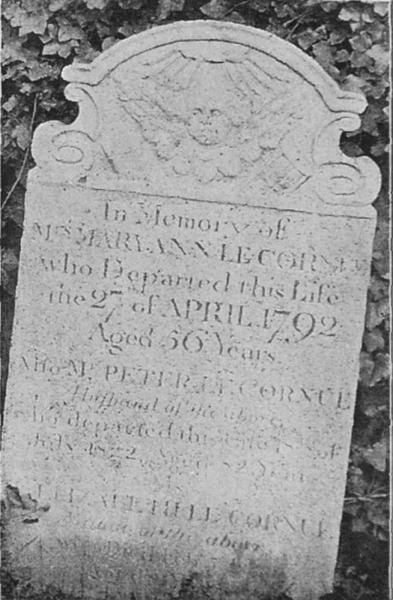 In Memory of
Mrs MARYANN LE CORNUE
who Departed this Life
the 27 of APRIL 1792
Aged 56 Years.
Also Mr PETER LE CORNUE
Husband of the above
who departed this Life of
July Aged 82 Years
ELIZABETH LE CORNUE
of the above